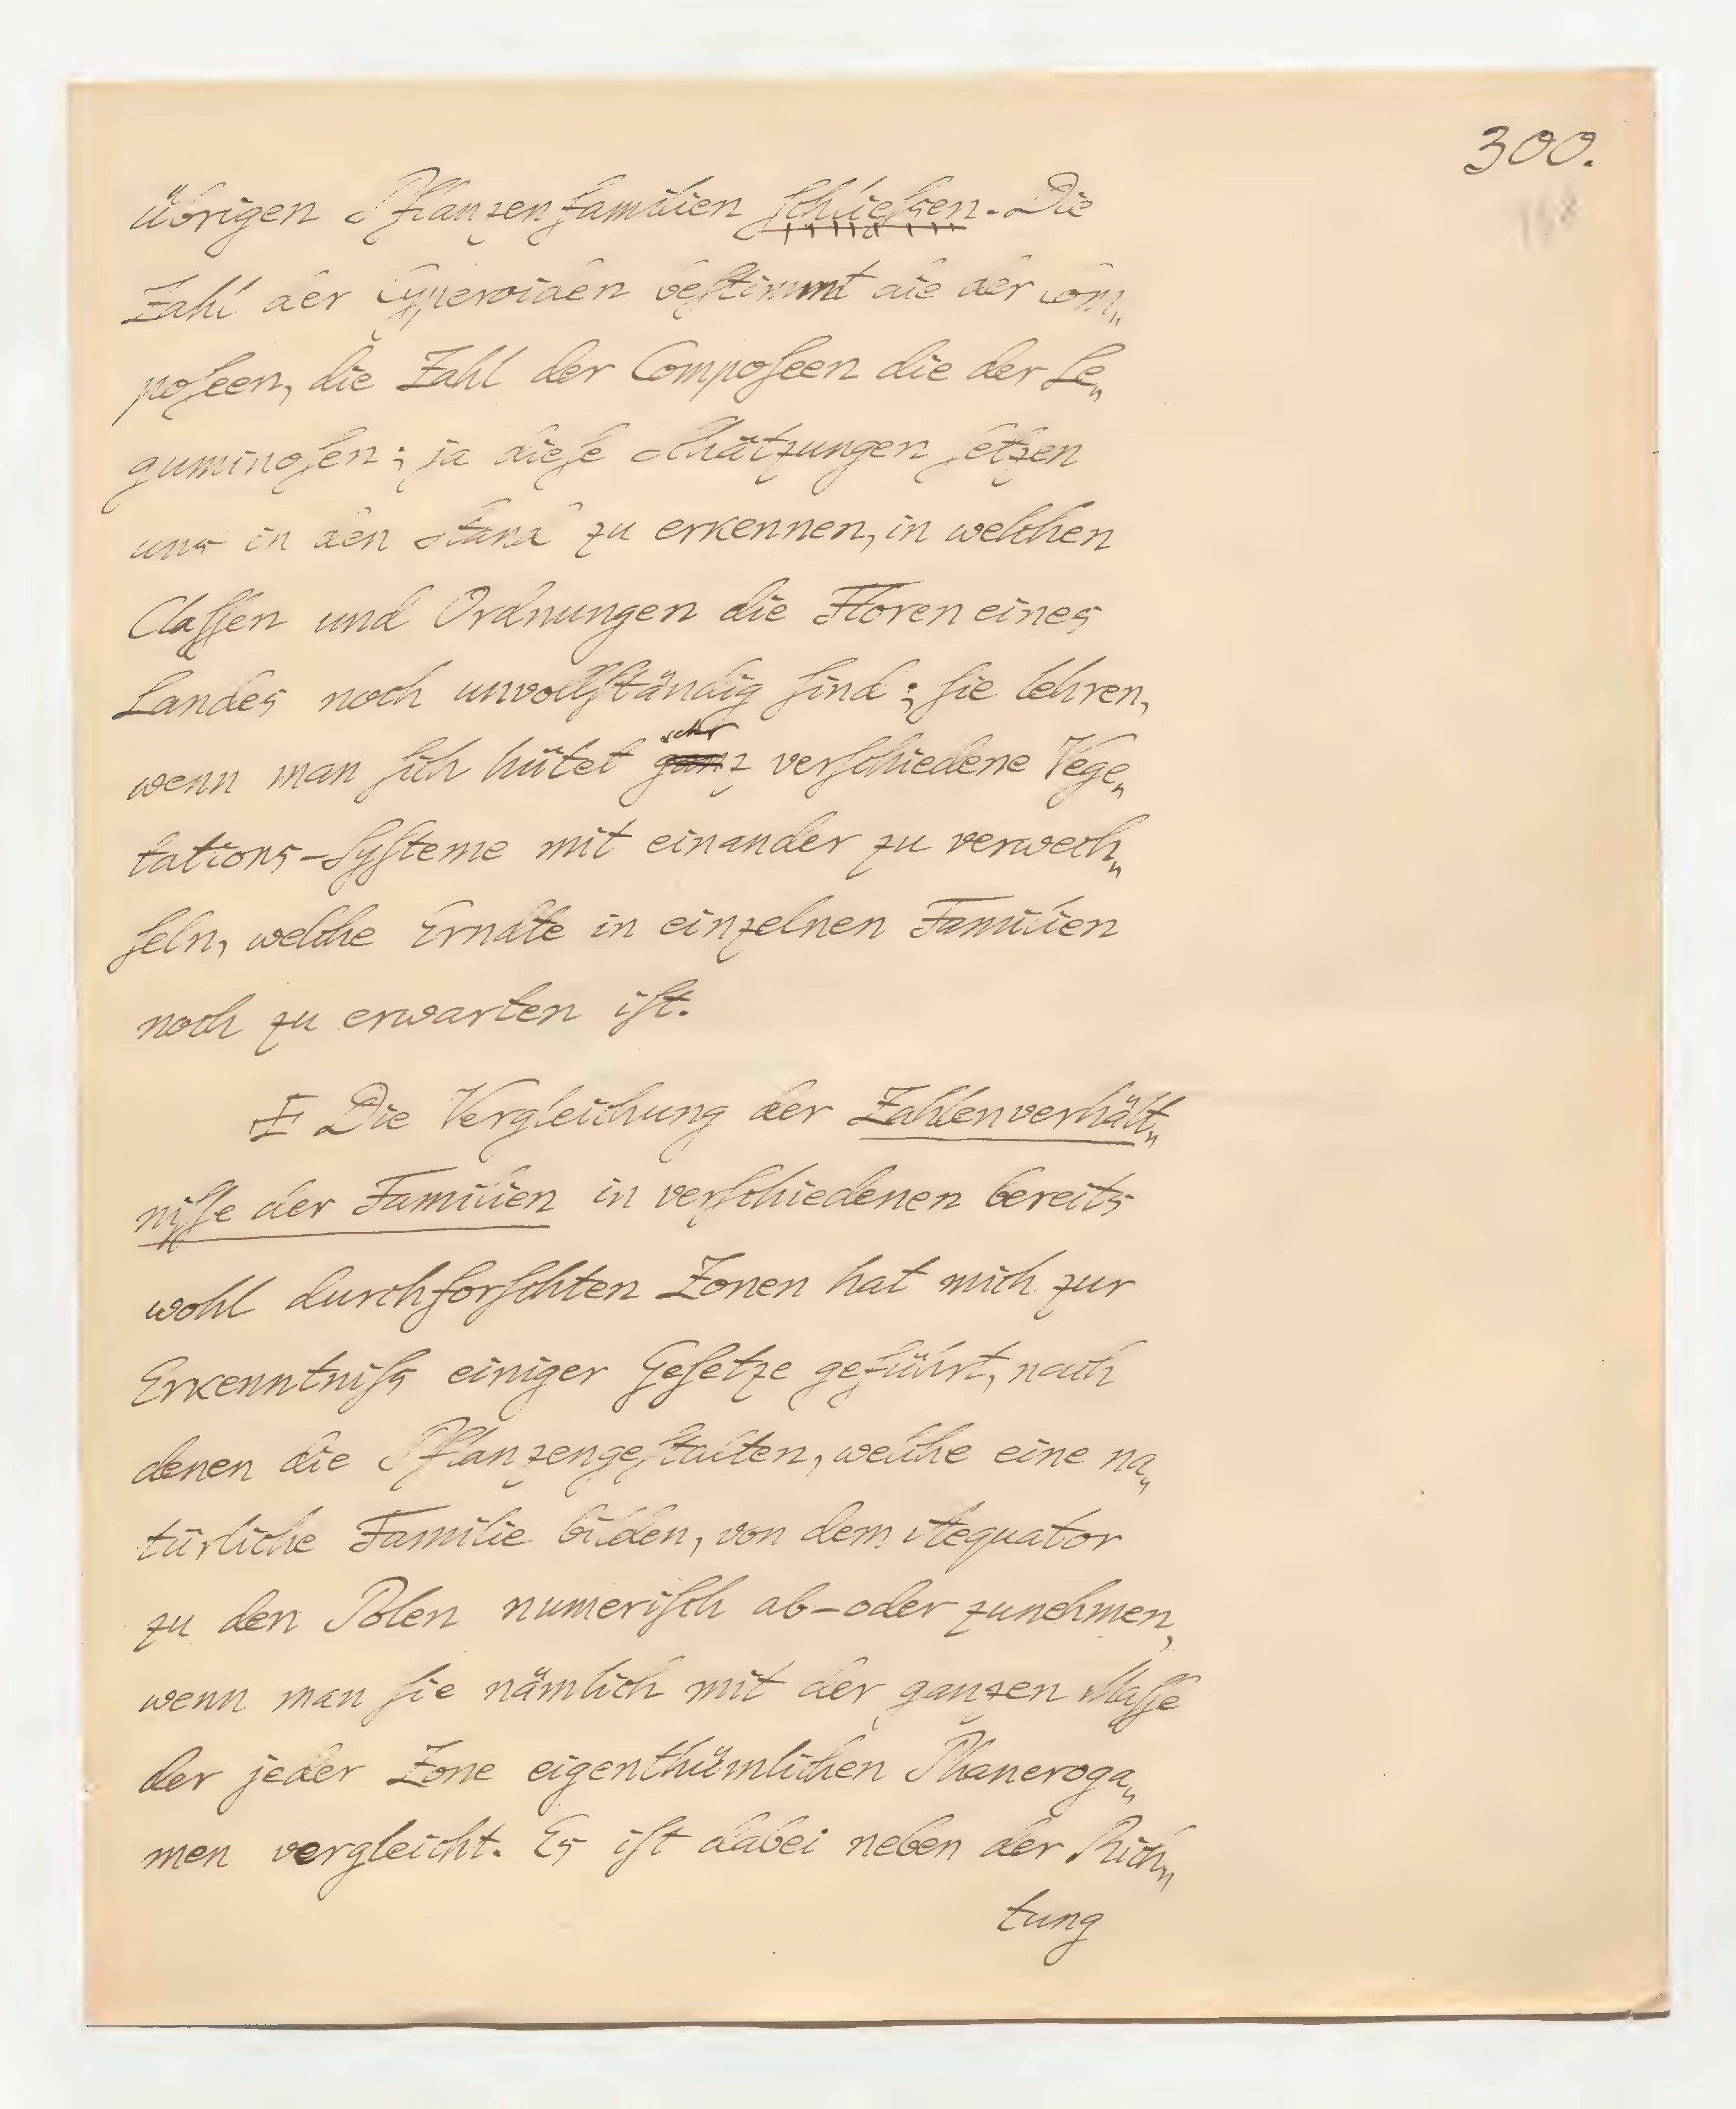 300.
übrigen Pflanzenfamilien schließen. Die
Zahl der Cyperoiden bestimmt die der Com„
poseen, die Zahl der Composeen die der Le„
guminosen; ja diese Schätzungen setzen
uns in den Stand zu erkennen, in welchen
Classen und Ordnungen die Floren eines
Landes noch unvollständig sind; sie lehren,
sehr
wenn man sich hütet ganz verschiedene Vege„
tations-Systeme mit einander zu verwech„
seln, welche Erndte in einzelnen Familien
noch zu erwarten ist.
Die Vergleichung der Zahlenverhält„
nisse der Familien in verschiedenen bereits
wohl durchforschten Zonen hat mich zur
Erkenntniß einiger Gesetze geführt, nach
denen die Pflanzengestalten, welche eine na„
türliche Familie bilden, von dem Aequator
zu den Polen numerisch ab-oder zunehmen,
wenn man sie nämlich mit der ganzen Masse
der jeder Zone eigenthümlichen Phaneroga„
men vergleicht. Es ist dabei neben der Rich„
tung